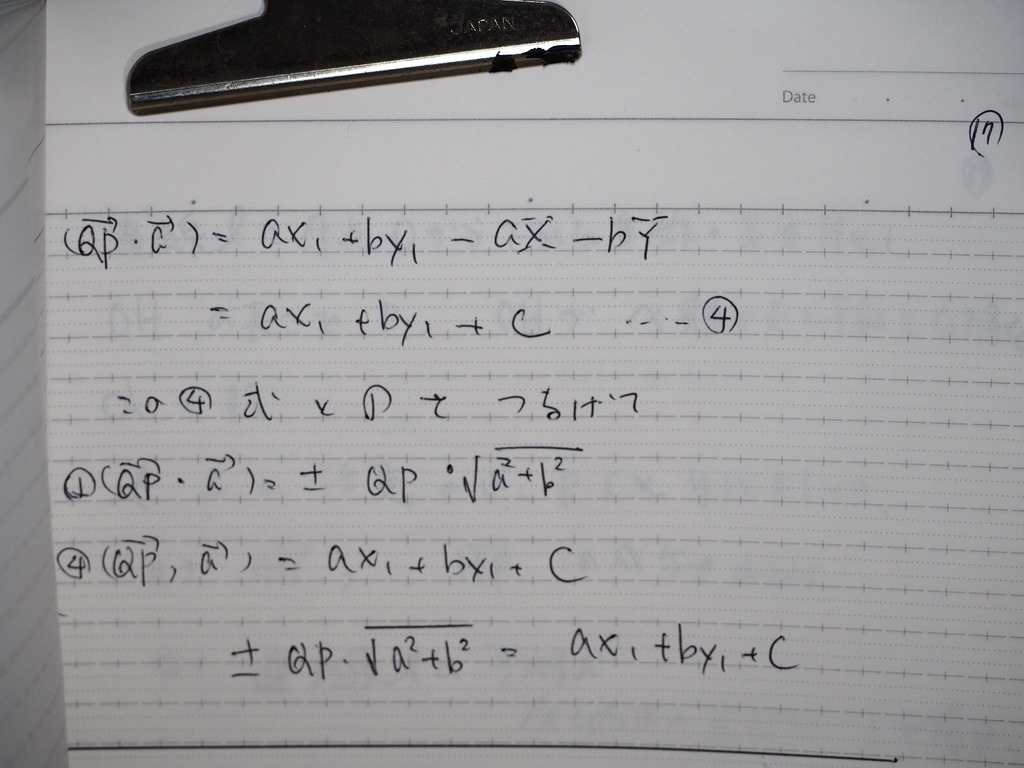 JAPAN
Date
⑰
(\vec{QP}・\vec{a}) = ax₁ + by₁ - aX - bY
= ax₁ + by₁ + C ・・・・ ④
この④式と①で つまり
①(\vec{QP}・\vec{a}) = ± QP・√(a²+b²)
④(\vec{QP}, \vec{a}) = ax₁ + by₁ + C
± QP・√(a²+b²) = ax₁ + by₁ + C